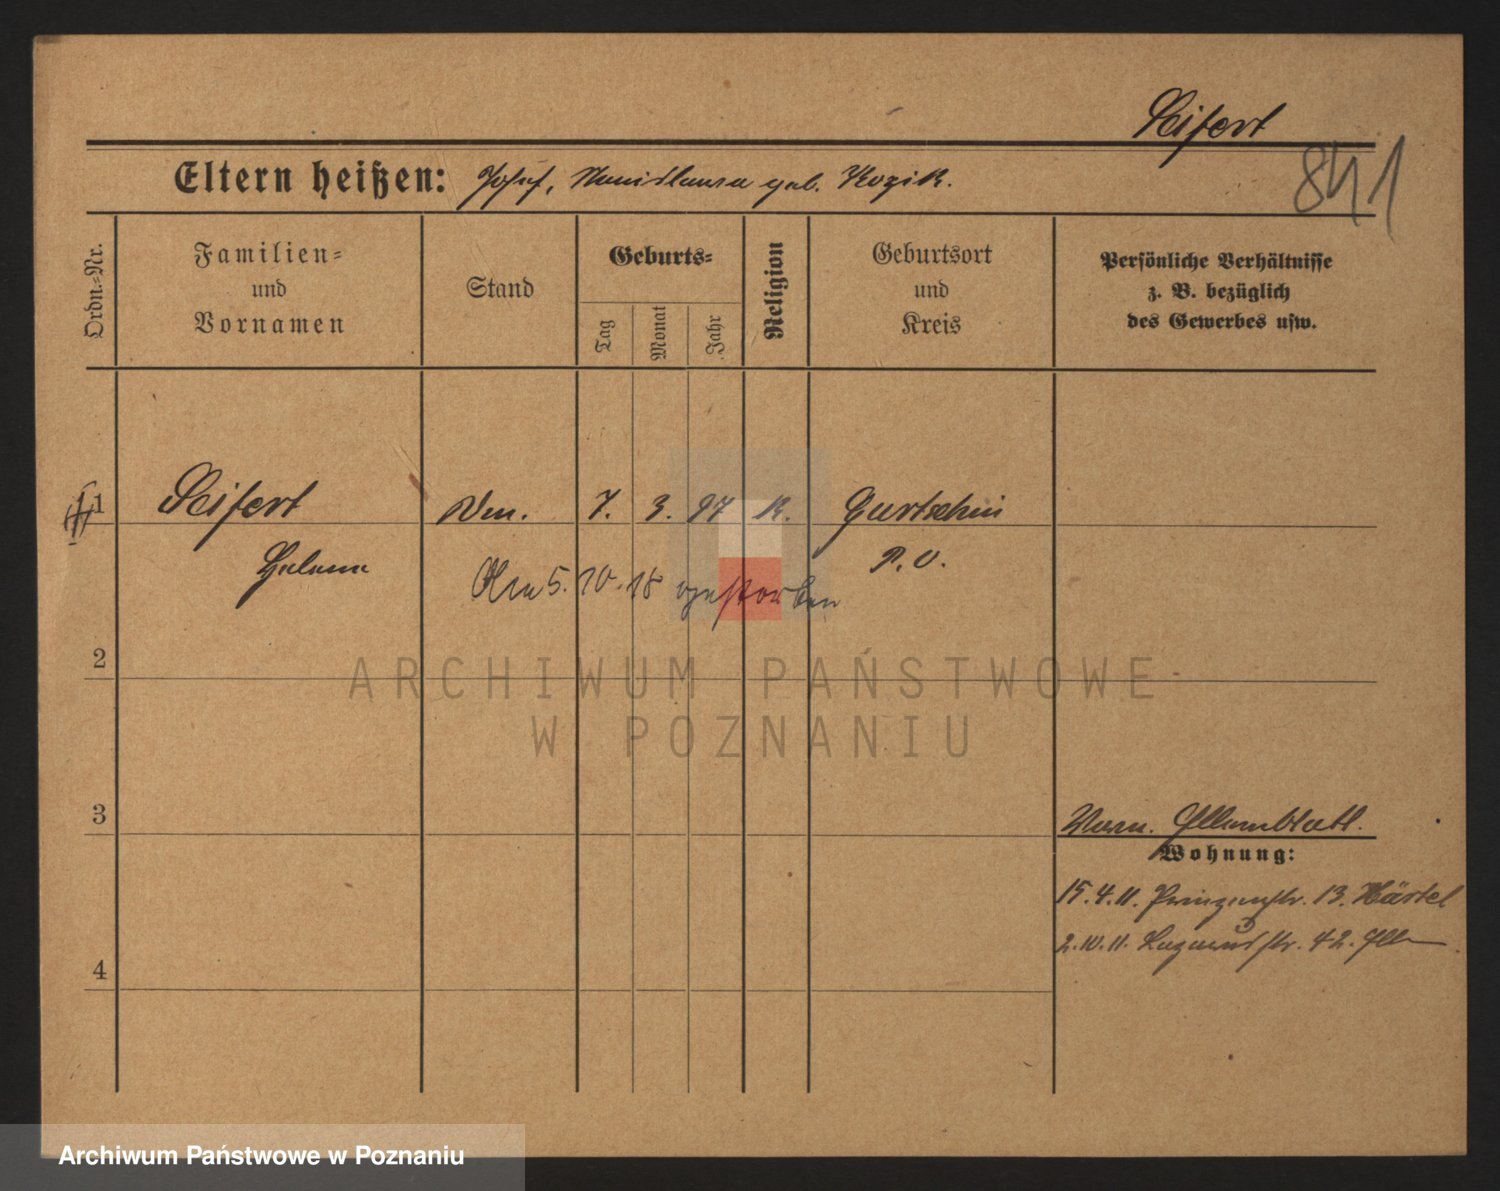 Seifert
841
Eltern heißen: Josef, Stanislawa geb. Kozik.
Ordn.-Nr.
Familien-
und
Vornamen
Stand
Geburts-
Tag
Monat
Jahr
Religion
Geburtsort
und
Kreis
Persönliche Verhältnisse
z. B. bezüglich
des Gewerbes usw.
1 Seifert 7. 3. 97 K. Gurtschin
Helene P. O.
Am 5. 10. 18 gestorben
2
ARCHIWUM PAŃSTWOWE
W POZNANIU
3
Elternblatt.
Wohnung:
15.4.11. Prinzenstr. 13. Härtel
2.10.11. 42.
4
Archiwum Państwowe w Poznaniu